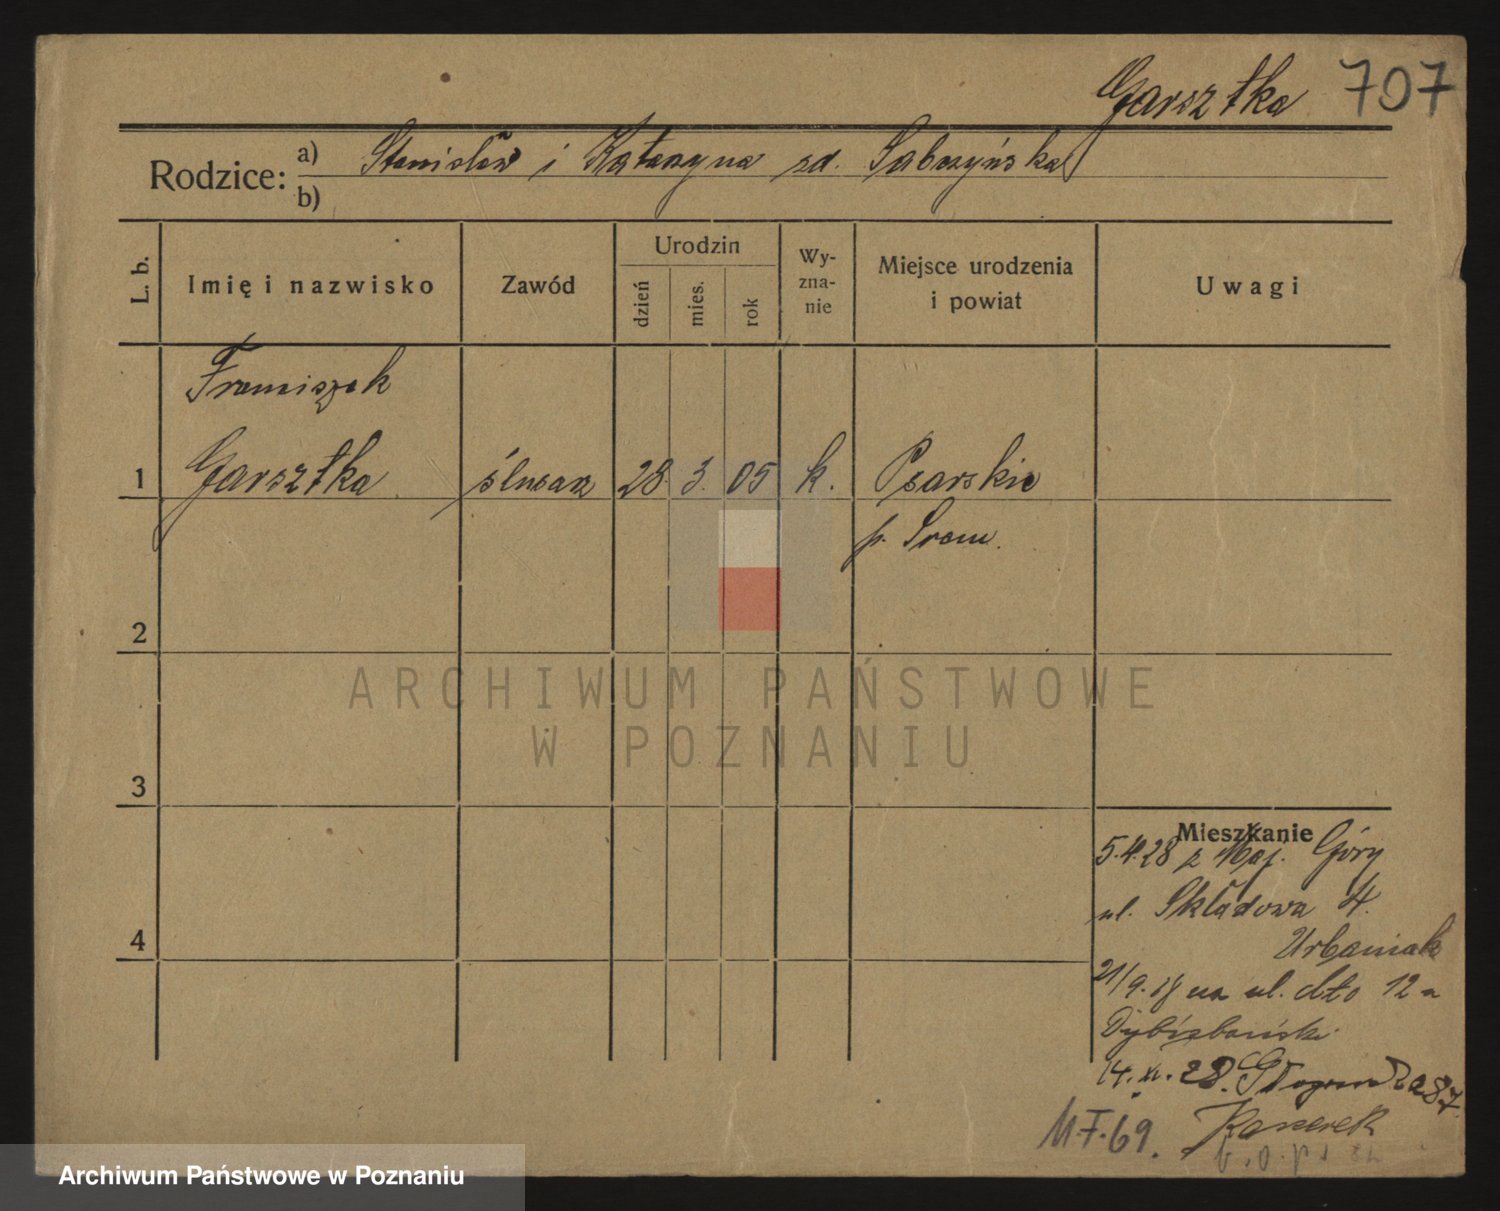 Garsztka 707
Rodzice: a) Stanisław i Katarzyna zd. Sabczyńska
b)
L. b. Imię i nazwisko Zawód Urodzin dzień mies. rok Wy-zna-nie Miejsce urodzenia i powiat Uwagi
Franciszek
1 Garsztka ślusarz 28. 3. 05 k. Psarskie
p. Śrem.
2
ARCHIWUM PAŃSTWOWE
W POZNANIU
3
Mieszkanie
5.4.28 z Maj. Góry
ul. Składowa 4.
Urbaniak
4
21/9.28 na ul. dto 12a
Dybizbański
14. XI. 28.
M.F.69. Kaszerek
Archiwum Państwowe w Poznaniu